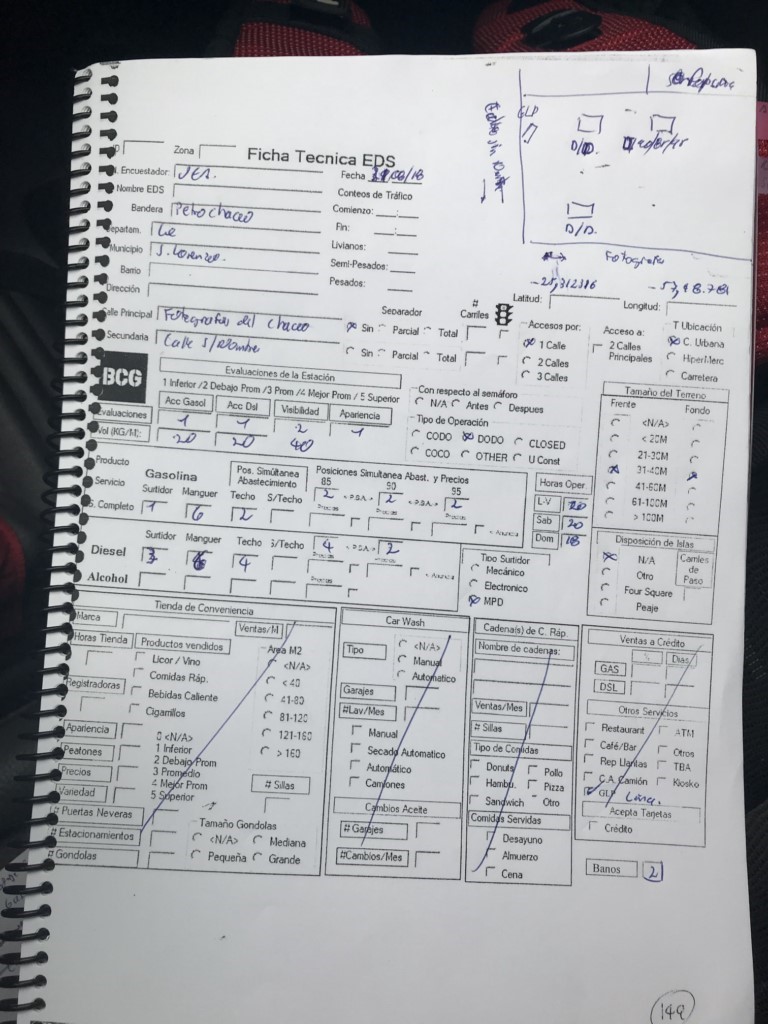 GLP
D/D.
D/D.
Fotografia
Zona
Ficha Tecnica EDS
. Encuestador JER. Fecha
Nombre EDS Conteos de Tráfico
Bandera Petrochaco Comienzo: __:__
epartam. Ce Fin: __:__
Municipio S. Lorenzo. Livianos:
Barrio Semi-Pesados:
Dirección Pesados:
-25,312316
Latitud: Longitud:
alle Principal Fotografos del chaco
Secundaria Calle S/Nombre
Separador # Carriles
Sin Parcial Total
Sin Parcial Total
Accesos por:
1 Calle
2 Calles
3 Calles
Acceso a:
2 Calles Principales
T Ubicación
C. Urbana
HiperMerc
Carretera
BCG
Evaluaciones de la Estación
1 Inferior /2 Debajo Prom /3 Prom /4 Mejor Prom / 5 Superior
Acc Gasol Acc Dsl Visibilidad Apariencia
valuaciones 1 1 2 1
Vol (KG/M): 20 20 40
Con respecto al semáforo
N/A Antes Despues
Tipo de Operación
CODO DODO CLOSED
COCO OTHER U Const
Tamaño del Terreno
Frente Fondo
<N/A>
< 20M
21-30M
31-40M
41-60M
61-100M
> 100M
Producto
Servicio Gasolina
Pos. Simúltanea Abastecimiento
Posiciones Simultanea Abast. y Precios
85 90 95
Surtidor Manguer Techo S/Techo
S. Completo 1 6 2 2 2 2
Horas Oper.
L-V 20
Sab 20
Dom 18
Surtidor Manguer Techo S/Techo
Diesel 3 6 4 4 2
Alcohol
Tipo Surtidor
Mecánico
Electronico
MPD
Disposición de Islas
N/A
Otro
Four Square
Peaje
Carriles de Paso
Tienda de Conveniencia
Marca Ventas/M
Horas Tienda Productos vendidos
Licor / Vino
Comidas Ráp.
Bebidas Caliente
Cigarrillos
Registradoras
Area M2
<N/A>
< 40
41-80
81-120
121-160
> 160
Apariencia
Peatones
Precios
Variedad
0 <N/A>
1 Inferior
2 Debajo Prom
3 Promedio
4 Mejor Prom
5 Superior
# Sillas
# Puertas Neveras
# Estacionamientos
# Gondolas
Tamaño Gondolas
<N/A> Mediana
Pequeña Grande
Car Wash
Tipo
<N/A>
Manual
Automatico
Garajes
#Lav/Mes
Manual
Secado Automatico
Automático
Camiones
Cambios Aceite
# Garajes
#Cambios/Mes
Cadena(s) de C. Ráp.
Nombre de cadenas:
Ventas/Mes
# Sillas
Tipo de Comidas
Donuts Pollo
Hambu. Pizza
Sandwich Otro
Comidas Servidas
Desayuno
Almuerzo
Cena
Ventas a Crédito
% Dias
GAS
DSL
Otros Servicios
Restaurant ATM
Café/Bar Otros
Rep Llantas TBA
C.A. Camión Kiosko
GLP
Acepta Tarjetas
Crédito
Banos 2
149